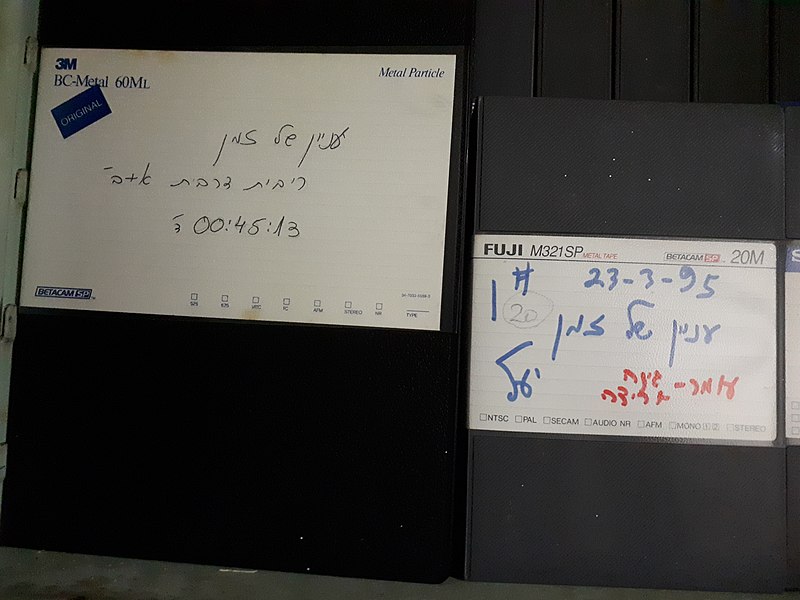 3M
BC-Metal 60ML
Metal Particle
ORIGINAL
עניין של זמן
ריבית דרבית א+ב
00:45:13
BETACAM SP
525
625
VITC
TC
AFM
STEREO
NR
TYPE
FUJI M321SP METAL TAPE BETACAM SP 20M
# 23-3-95
1 20
עניין של זמן
יעל
עומר -
NTSC PAL SECAM AUDIO NR AFM MONO 1 2 STEREO